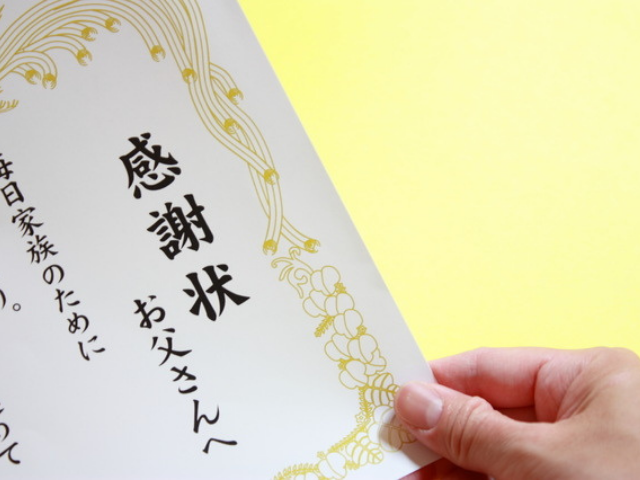 感謝状
お父さんへ
毎日家族のために
り。
って